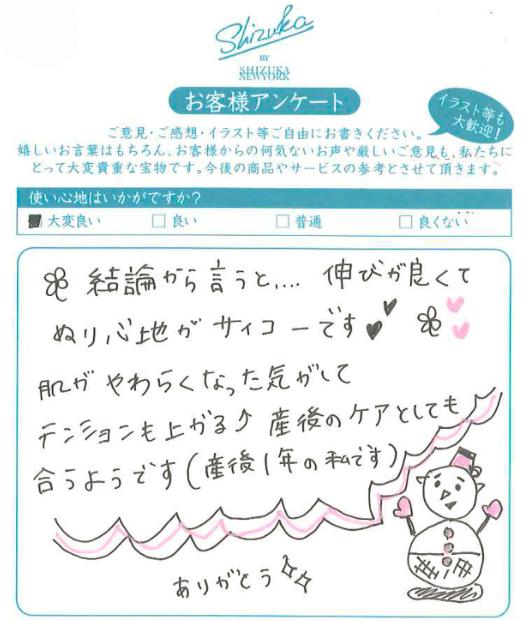 Shizuka
BY
SHIZUKA
NEWYORK
お客様アンケート
イラスト等も
大歓迎！
ご意見・ご感想・イラスト等ご自由にお書きください。
嬉しいお言葉はもちろん、お客様からの何気ないお声や厳しいご意見も、私たちに
とって大変貴重な宝物です。今後の商品やサービスの参考とさせて頂きます。
使い心地はいかがですか？
大変良い 良い 普通 良くない
結論から言うと.... 伸びが良くて
ぬり心地がサイコーです
肌がやわらくなった気がして
テンションも上がる⤴ 産後のケアとしても
合うようです(産後1年の私です)
ありがとう